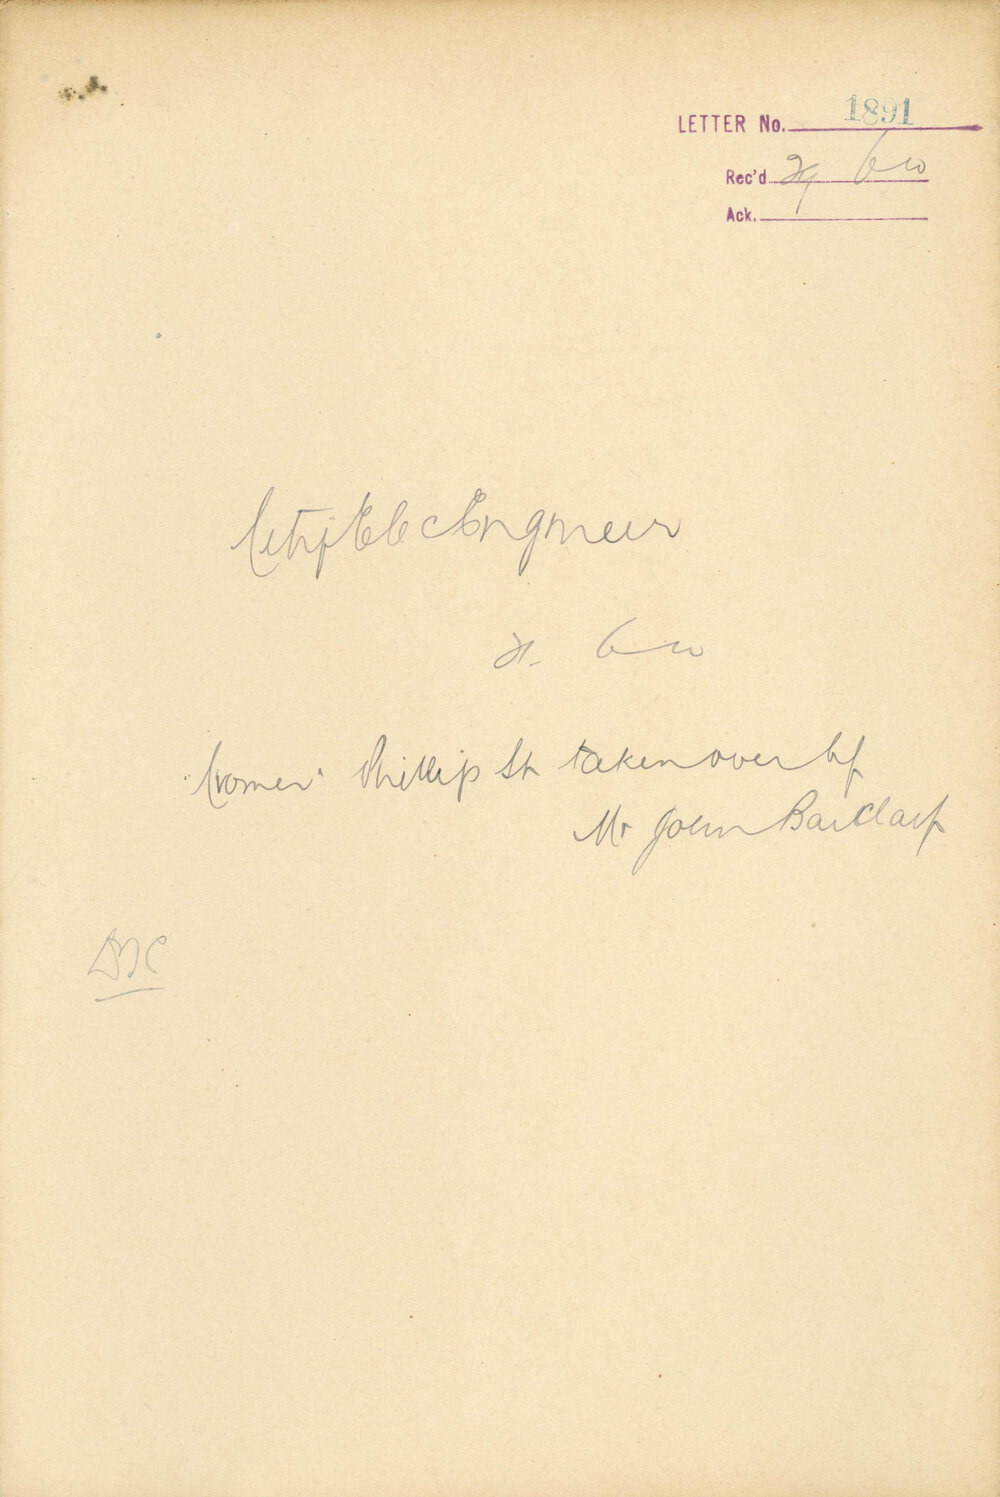 LETTER No. 1891
Rec'd
Ack.
City Elec Engineer
"Cromer" Phillip St taken over by
Mr John Barclay